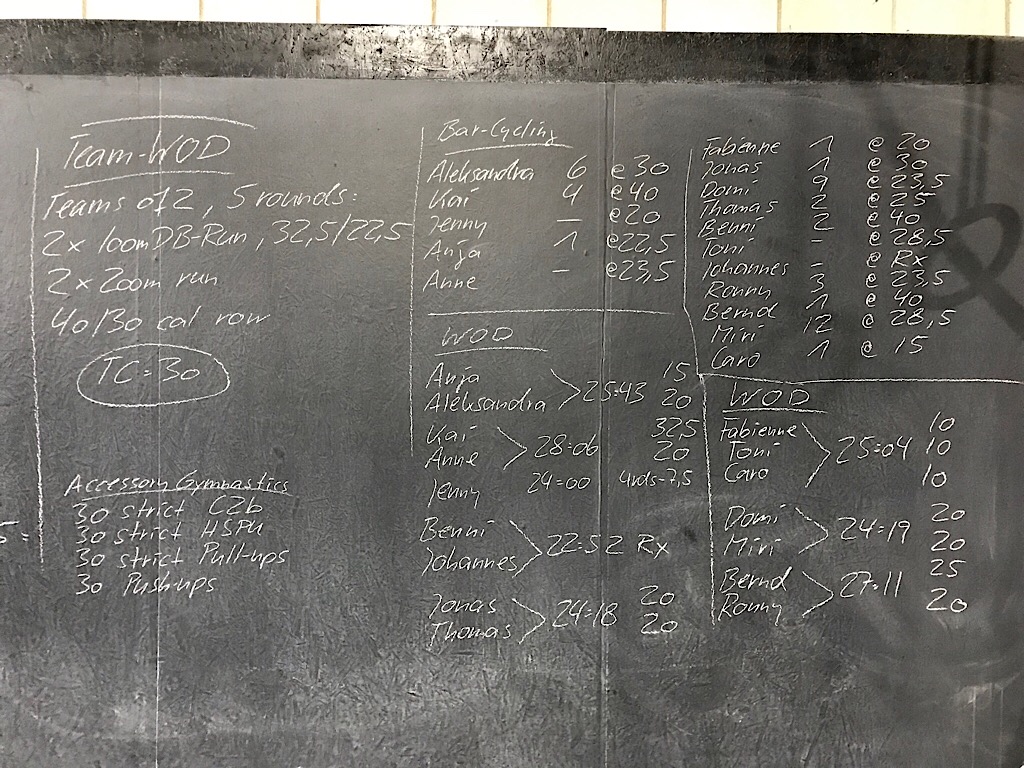 Team-WOD
Teams of 2, 5 rounds:
2x 100m DB-Run, 32,5/22,5
2x 200m run
40/30 cal row
TC = 30
Accessory Gymnastics
30 strict C2b
30 strict HSPU
30 strict Pull-ups
30 Push-ups
Bar-Cycling
Aleksandra 6 @ 30
Kai 4 @ 40
Jenny – @ 20
Anja 1 @ 22,5
Anne – @ 23,5
WOD
Anja 15
Aleksandra > 25:43 20
Kai 32,5
Anne > 28:06 20
Jenny 24:00 4rds-7,5
Benni
Johannes > 22:52 Rx
Jonas 20
Thomas > 24:18 20
Fabienne 1 @ 20
Jonas 1 @ 30
Domi 9 @ 23,5
Thomas 2 @ 25
Benni 2 @ 40
Toni - @ 28,5
Johannes - @ Rx
Ronny 3 @ 23,5
Bernd 1 @ 40
Miri 12 @ 28,5
Caro 1 @ 15
WOD
Fabienne 10
Toni > 25:04 10
Caro 10
Domi 20
Miri > 24:19 20
Bernd 25
Ronny > 27:11 20